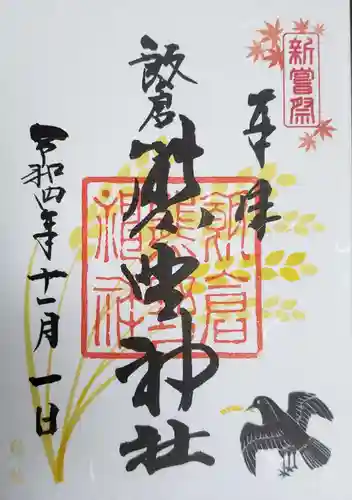 新嘗祭
奉拝
飯倉
熊野神社
飯倉
熊野
神社
令和四年十一月一日